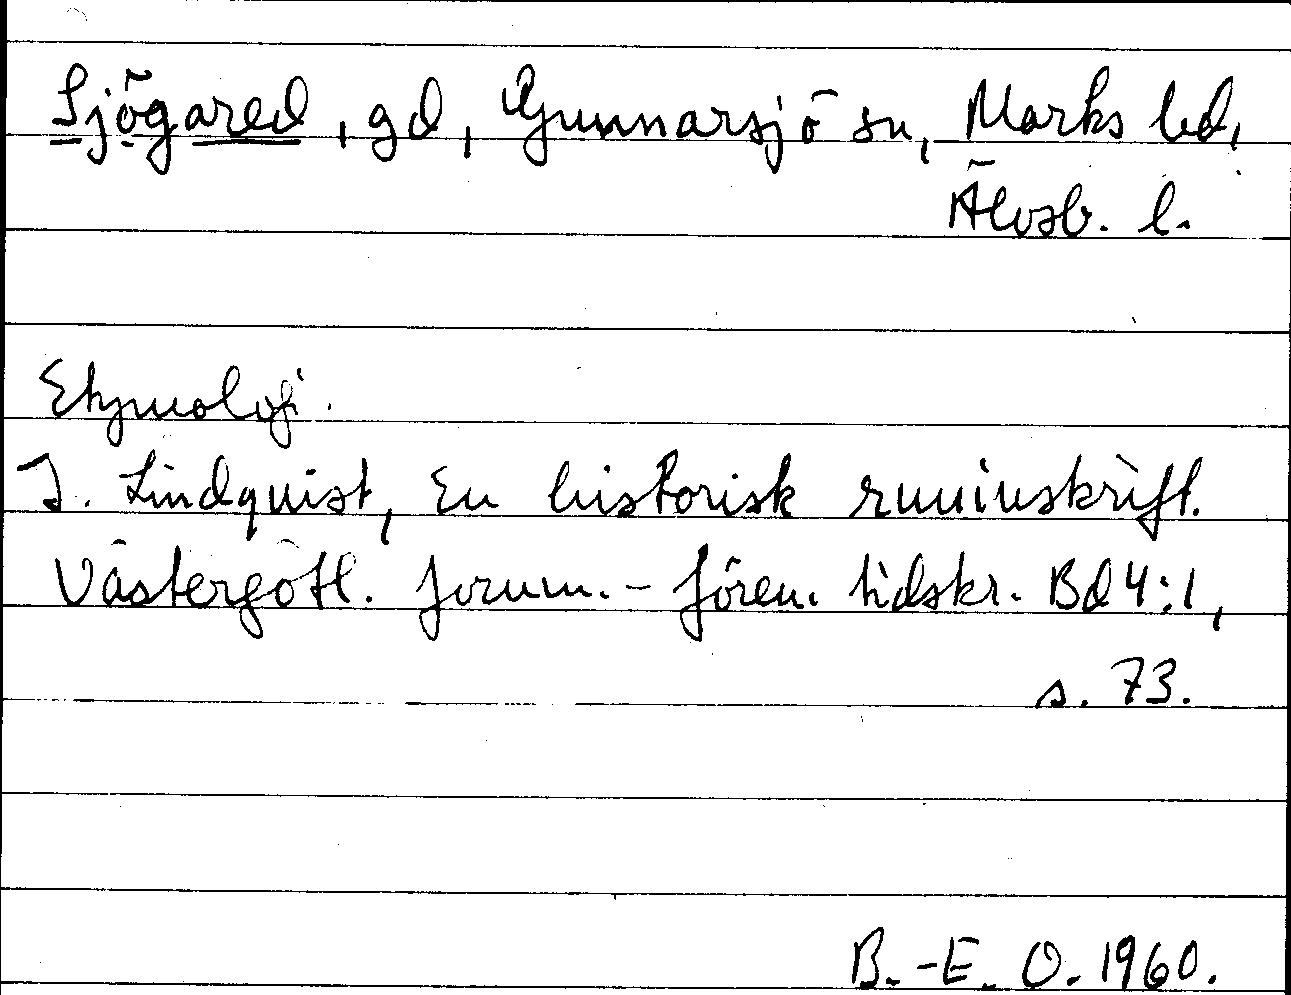 Sjögared, gd, Gunnarsjö sn, Marks hd,
Älvsb. l.
Etymologi.
I. Lindquist, En historisk runinskrift.
Västergötl. fornm.-fören. tidskr. Bd 4:1,
s. 73.
B.-E. O. 1960.